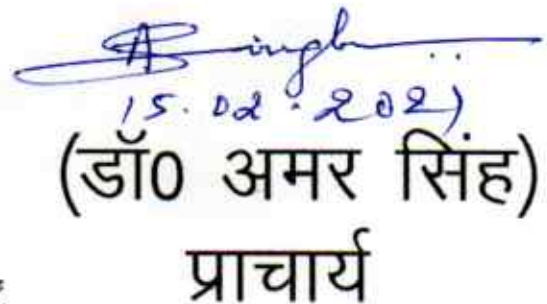 ASingh
15.02.2021
(डॉ0 अमर सिंह)
प्राचार्य